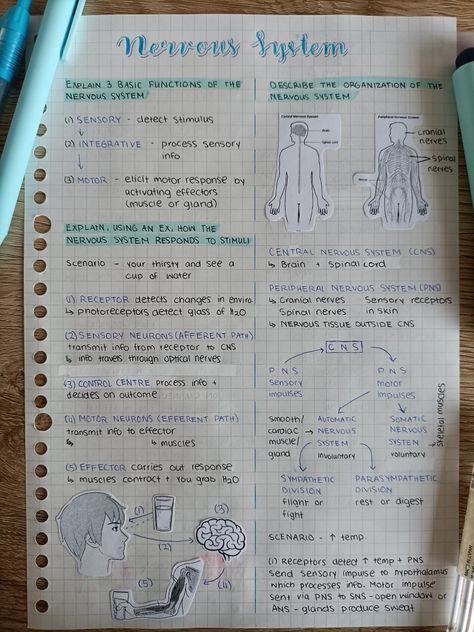 Nervous System
EXPLAIN 3 BASIC FUNCTIONS OF THE
NERVOUS SYSTEM
(1) SENSORY - detect stimulus
(2) INTEGRATIVE - process sensory
info
(3) MOTOR - elicit motor response by
activating effectors
(muscle or gland)
EXPLAIN, USING AN EX, HOW THE
NERVOUS SYSTEM RESPONDS TO STIMULI
Scenario - your thirsty and see a
cup of water
(1) RECEPTOR detects changes in enviro.
↳ photoreceptors detect glass of H2O
(2) SENSORY NEURONS (AFFERENT PATH)
transmit info from receptor to CNS
↳ info travels through optical nerves
(3) CONTROL CENTRE process info +
decides on outcome
(4) MOTOR NEURONS (EFFERENT PATH)
transmit info to effector
↳ muscles
(5) EFFECTOR carries out response
↳ muscles contract + you grab H2O
(1)
(2)
(3)
(4)
(5)
DESCRIBE THE ORGANIZATION OF THE
NERVOUS SYSTEM
Central Nervous System
Brain
Spinal cord
Peripheral Nervous System
cranial
nerves
spinal
nerves
CENTRAL NERVOUS SYSTEM (CNS)
↳ Brain + Spinal cord
PERIPHERAL NERVOUS SYSTEM (PNS)
↳ Cranial nerves Sensory receptors
Spinal nerves in skin
↳ NERVOUS TISSUE OUTSIDE CNS
CNS
PNS
sensory
impulses
PNS
motor
impulses
smooth/
cardiac
muscle/
gland
AUTOMATIC
NERVOUS
SYSTEM
involuntary
SOMATIC
NERVOUS
SYSTEM
voluntary
skeletal muscles
SYMPATHETIC
DIVISION
flight or
fight
PARASYMPATHETIC
DIVISION
rest or digest
SCENARIO - ↑ temp.
(1) receptors detect ↑ temp + PNS
send sensory impulse to hypothalamus
which processes info. Motor impulse
sent via PNS to SNS - open window or
ANS - glands produce sweat